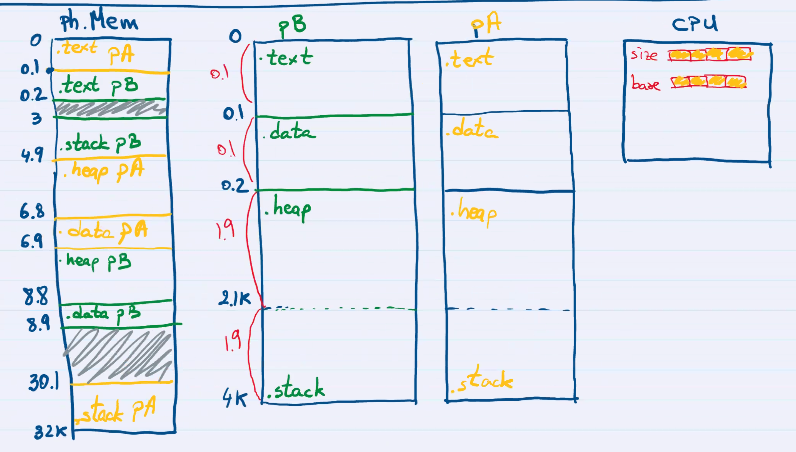 ph.Mem
0
.text pA
0.1
.text pB
0.2
3
.stack pB
4.9
.heap pA
6.8
.data pA
6.9
.heap pB
8.8
.data pB
8.9
30.1
.stack pA
32K
pB
0
.text
0.1
0.1
.data
0.1
0.2
.heap
1.9
2.1K
1.9
.stack
4K
pA
.text
.data
.heap
.stack
CPU
size
base